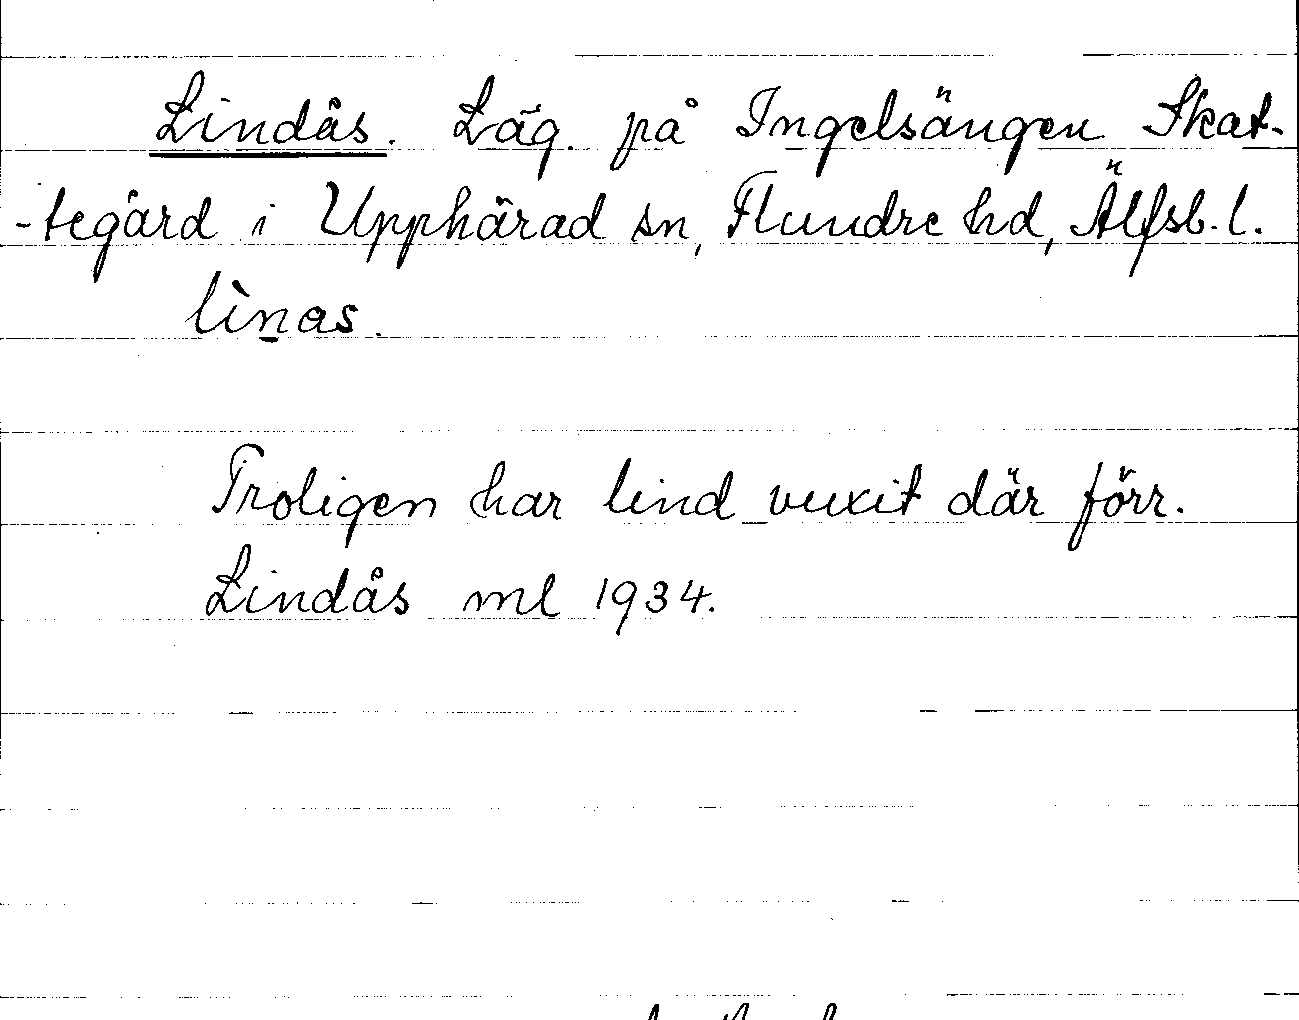 Lindås. Läg. på Ingelsängen Skat-
-tegård i Upphärad sn, Flundre hd, Älfsb. l.
lìnas.
Troligen har lind vuxit där förr.
Lindås ml 1934.